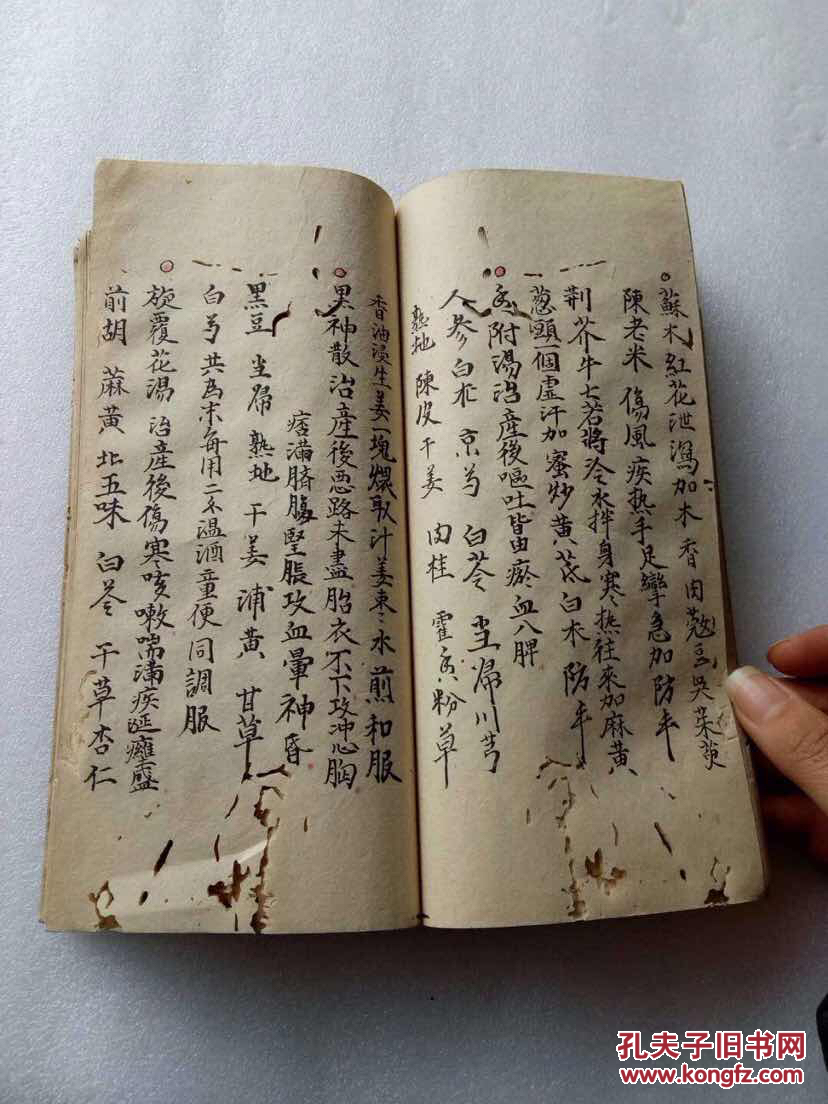 蘇木紅花泄瀉加木香肉蔻豆吳茱萸
陳老米傷風疾热手足攣急加防丰
荆芥牛七若將冷水拌身寒热往來加麻黄
葱頭一個虛汗加蜜炒黄芪白术防丰
香附湯治產後嘔吐皆由瘀血入脾
人參白术京芍白苓当歸川芎
熟地陳皮干姜肉桂霍香粉草
香油浸生姜一塊煨取汁姜枣水煎和服
黑神散治產後恶路未盡胎衣不下攻冲心胸
痞滿臍腹堅脹攻血暈神昏
黑豆当歸熟地干姜浦黄甘草
白芍共為末每用二不温酒童便同調服
旋覆花湯治產後傷寒咳嗽喘滿疾涎癰盛
前胡蔴黄北五味白苓干草杏仁
孔夫子旧书网
www.kongfz.com